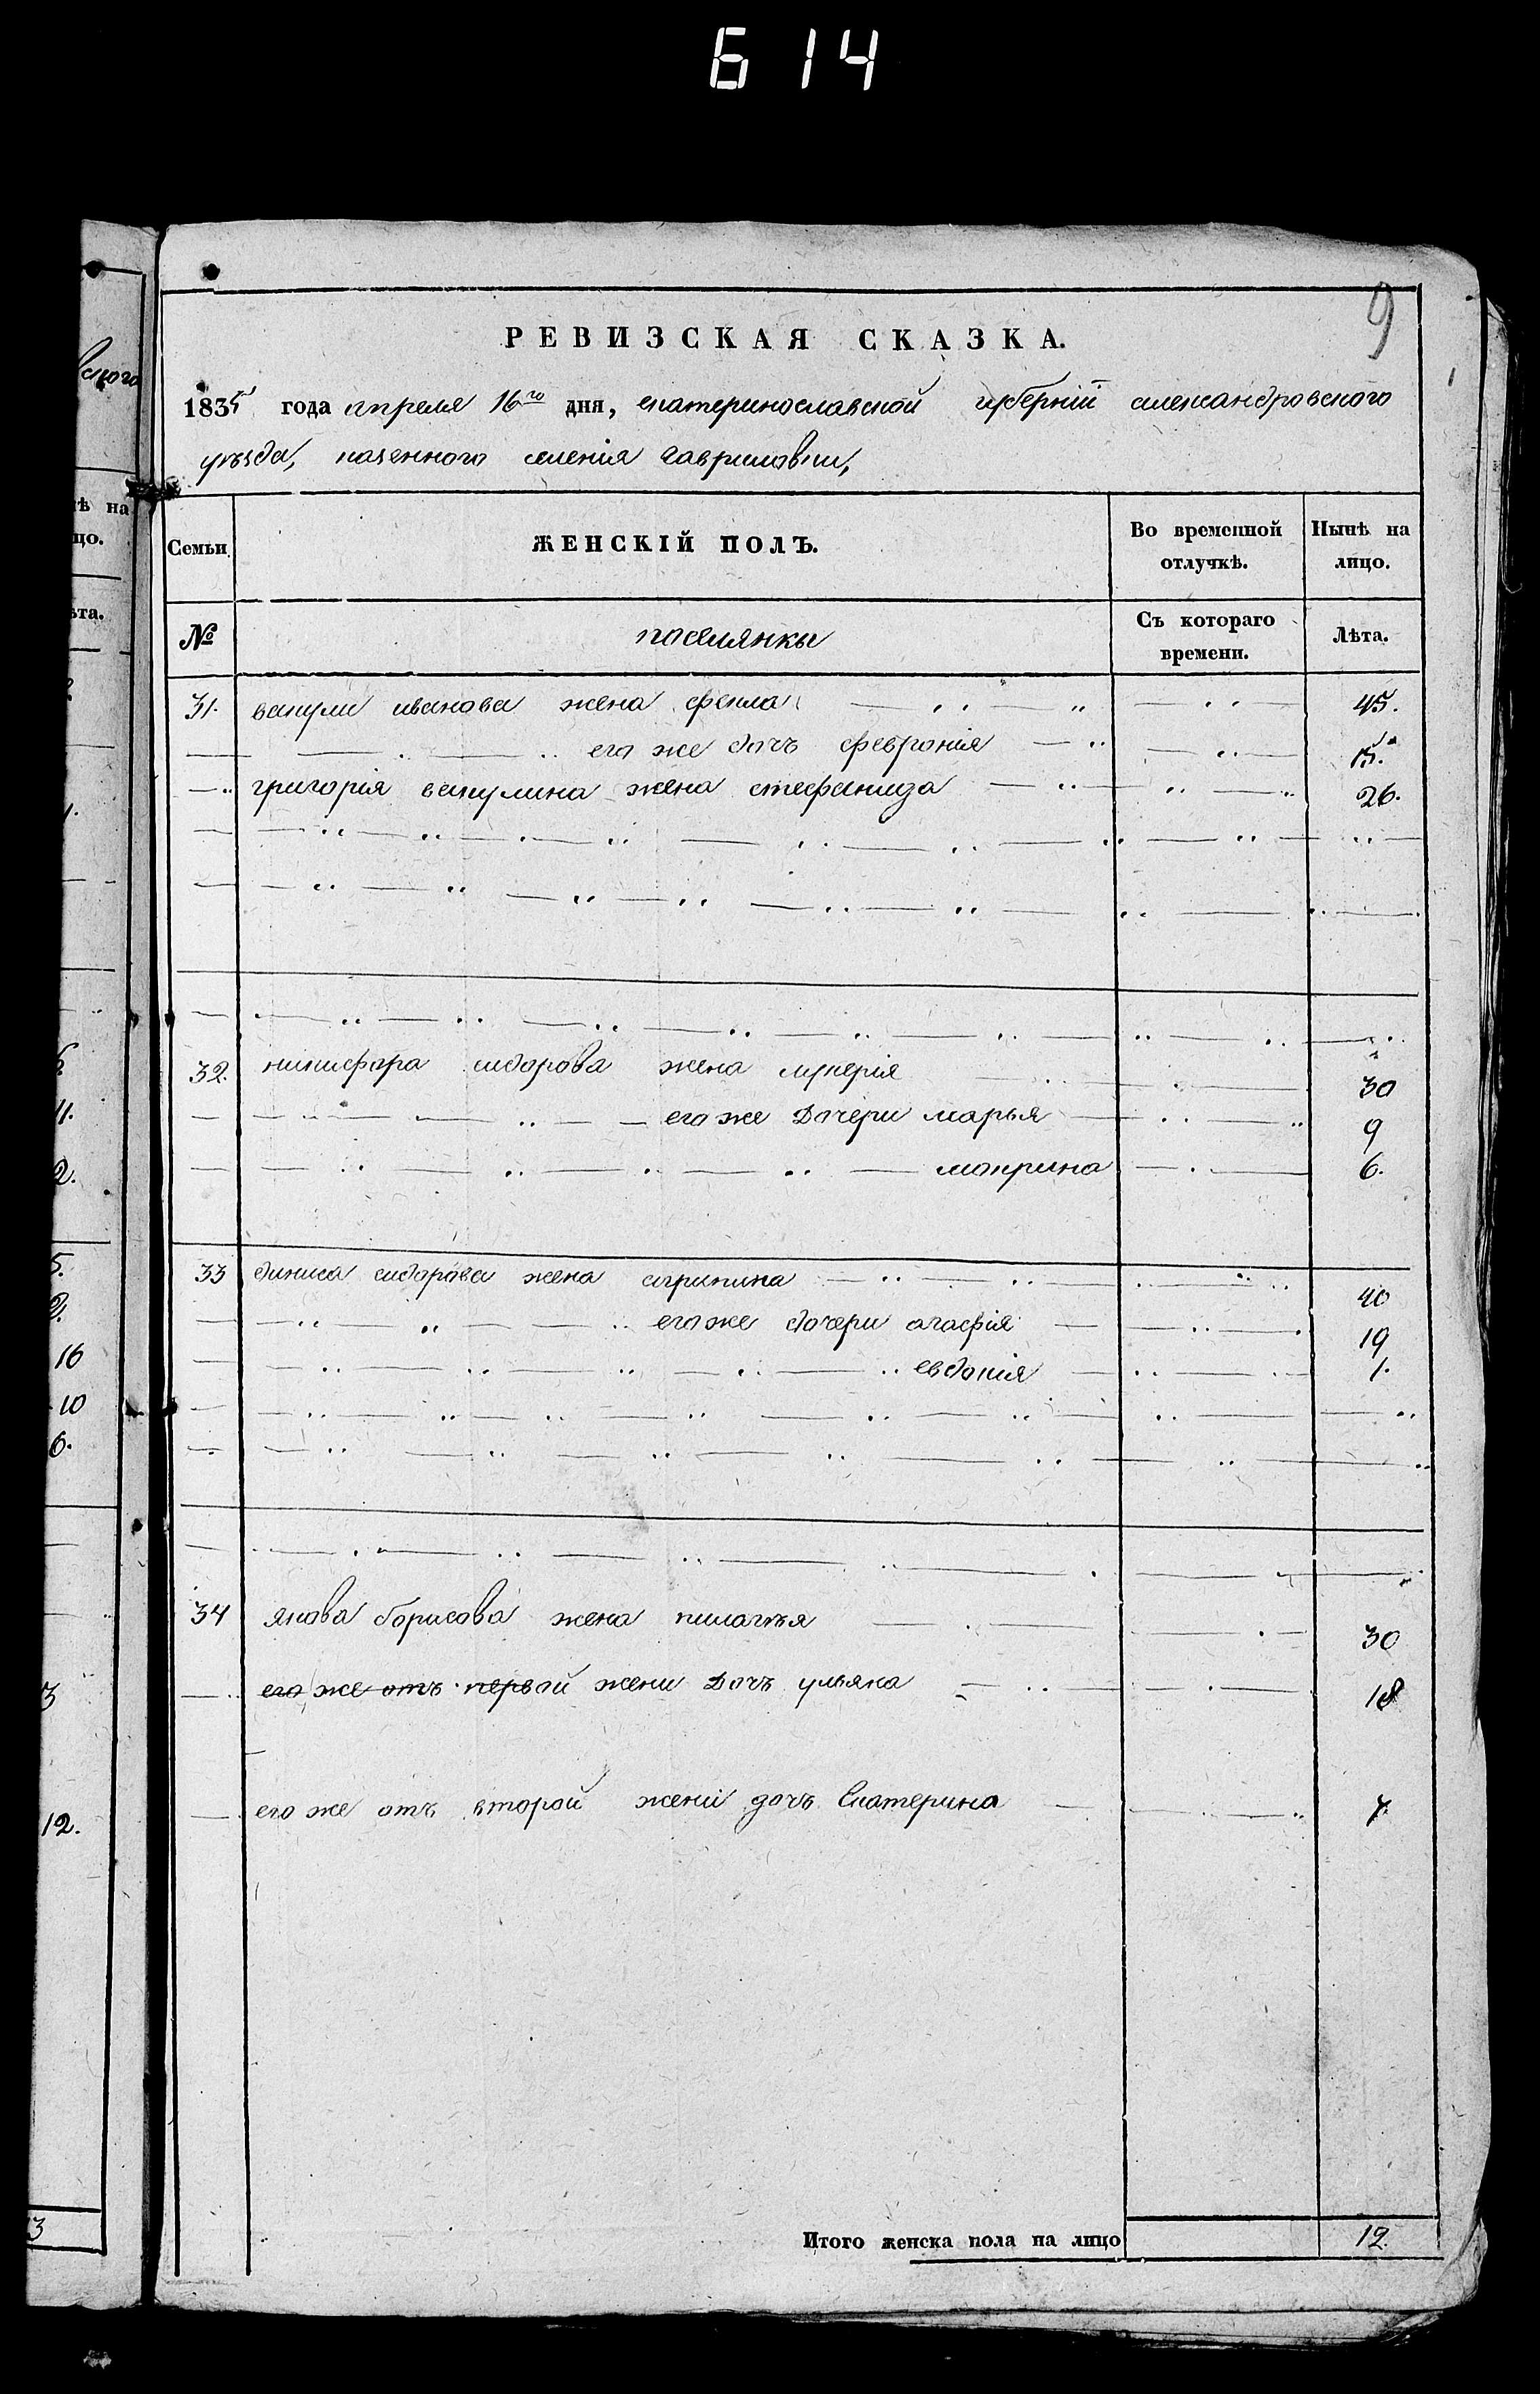 614
9
РЕВИЗСКАЯ СКАЗКА.
1835 года апреля 16го дня, екатеринославской губерніи александровского
уѣзда, казенного селенія Гавриловки,
Семьи
ЖЕНСКІЙ ПОЛЪ.
Во временной отлучкѣ.
Нынѣ на лицо.
№
поселянки
Съ котораго времени.
Лѣта.
31. вакули иванова жена фекла 45.
его же дочъ февронія 15.
григорія вакулина жена стефанида 26.
32. никифора сидорова жена лукерія 30
его же дочери марья 9
макрина 6.
33 диниса сидорова жена агрипина 40
его же дочери агафія 19
евдокія 1.
34 якова борисова жена пилагѣя 30
его же отъ первой жени дочъ ульяна 18
его же отъ второй жени дочъ Екатерина 7
Итого женска пола на лицо 12.
ского
нѣ на
цо.
ѣта.
11.
2.
5.
2.
16
10
6.
3
12.
3